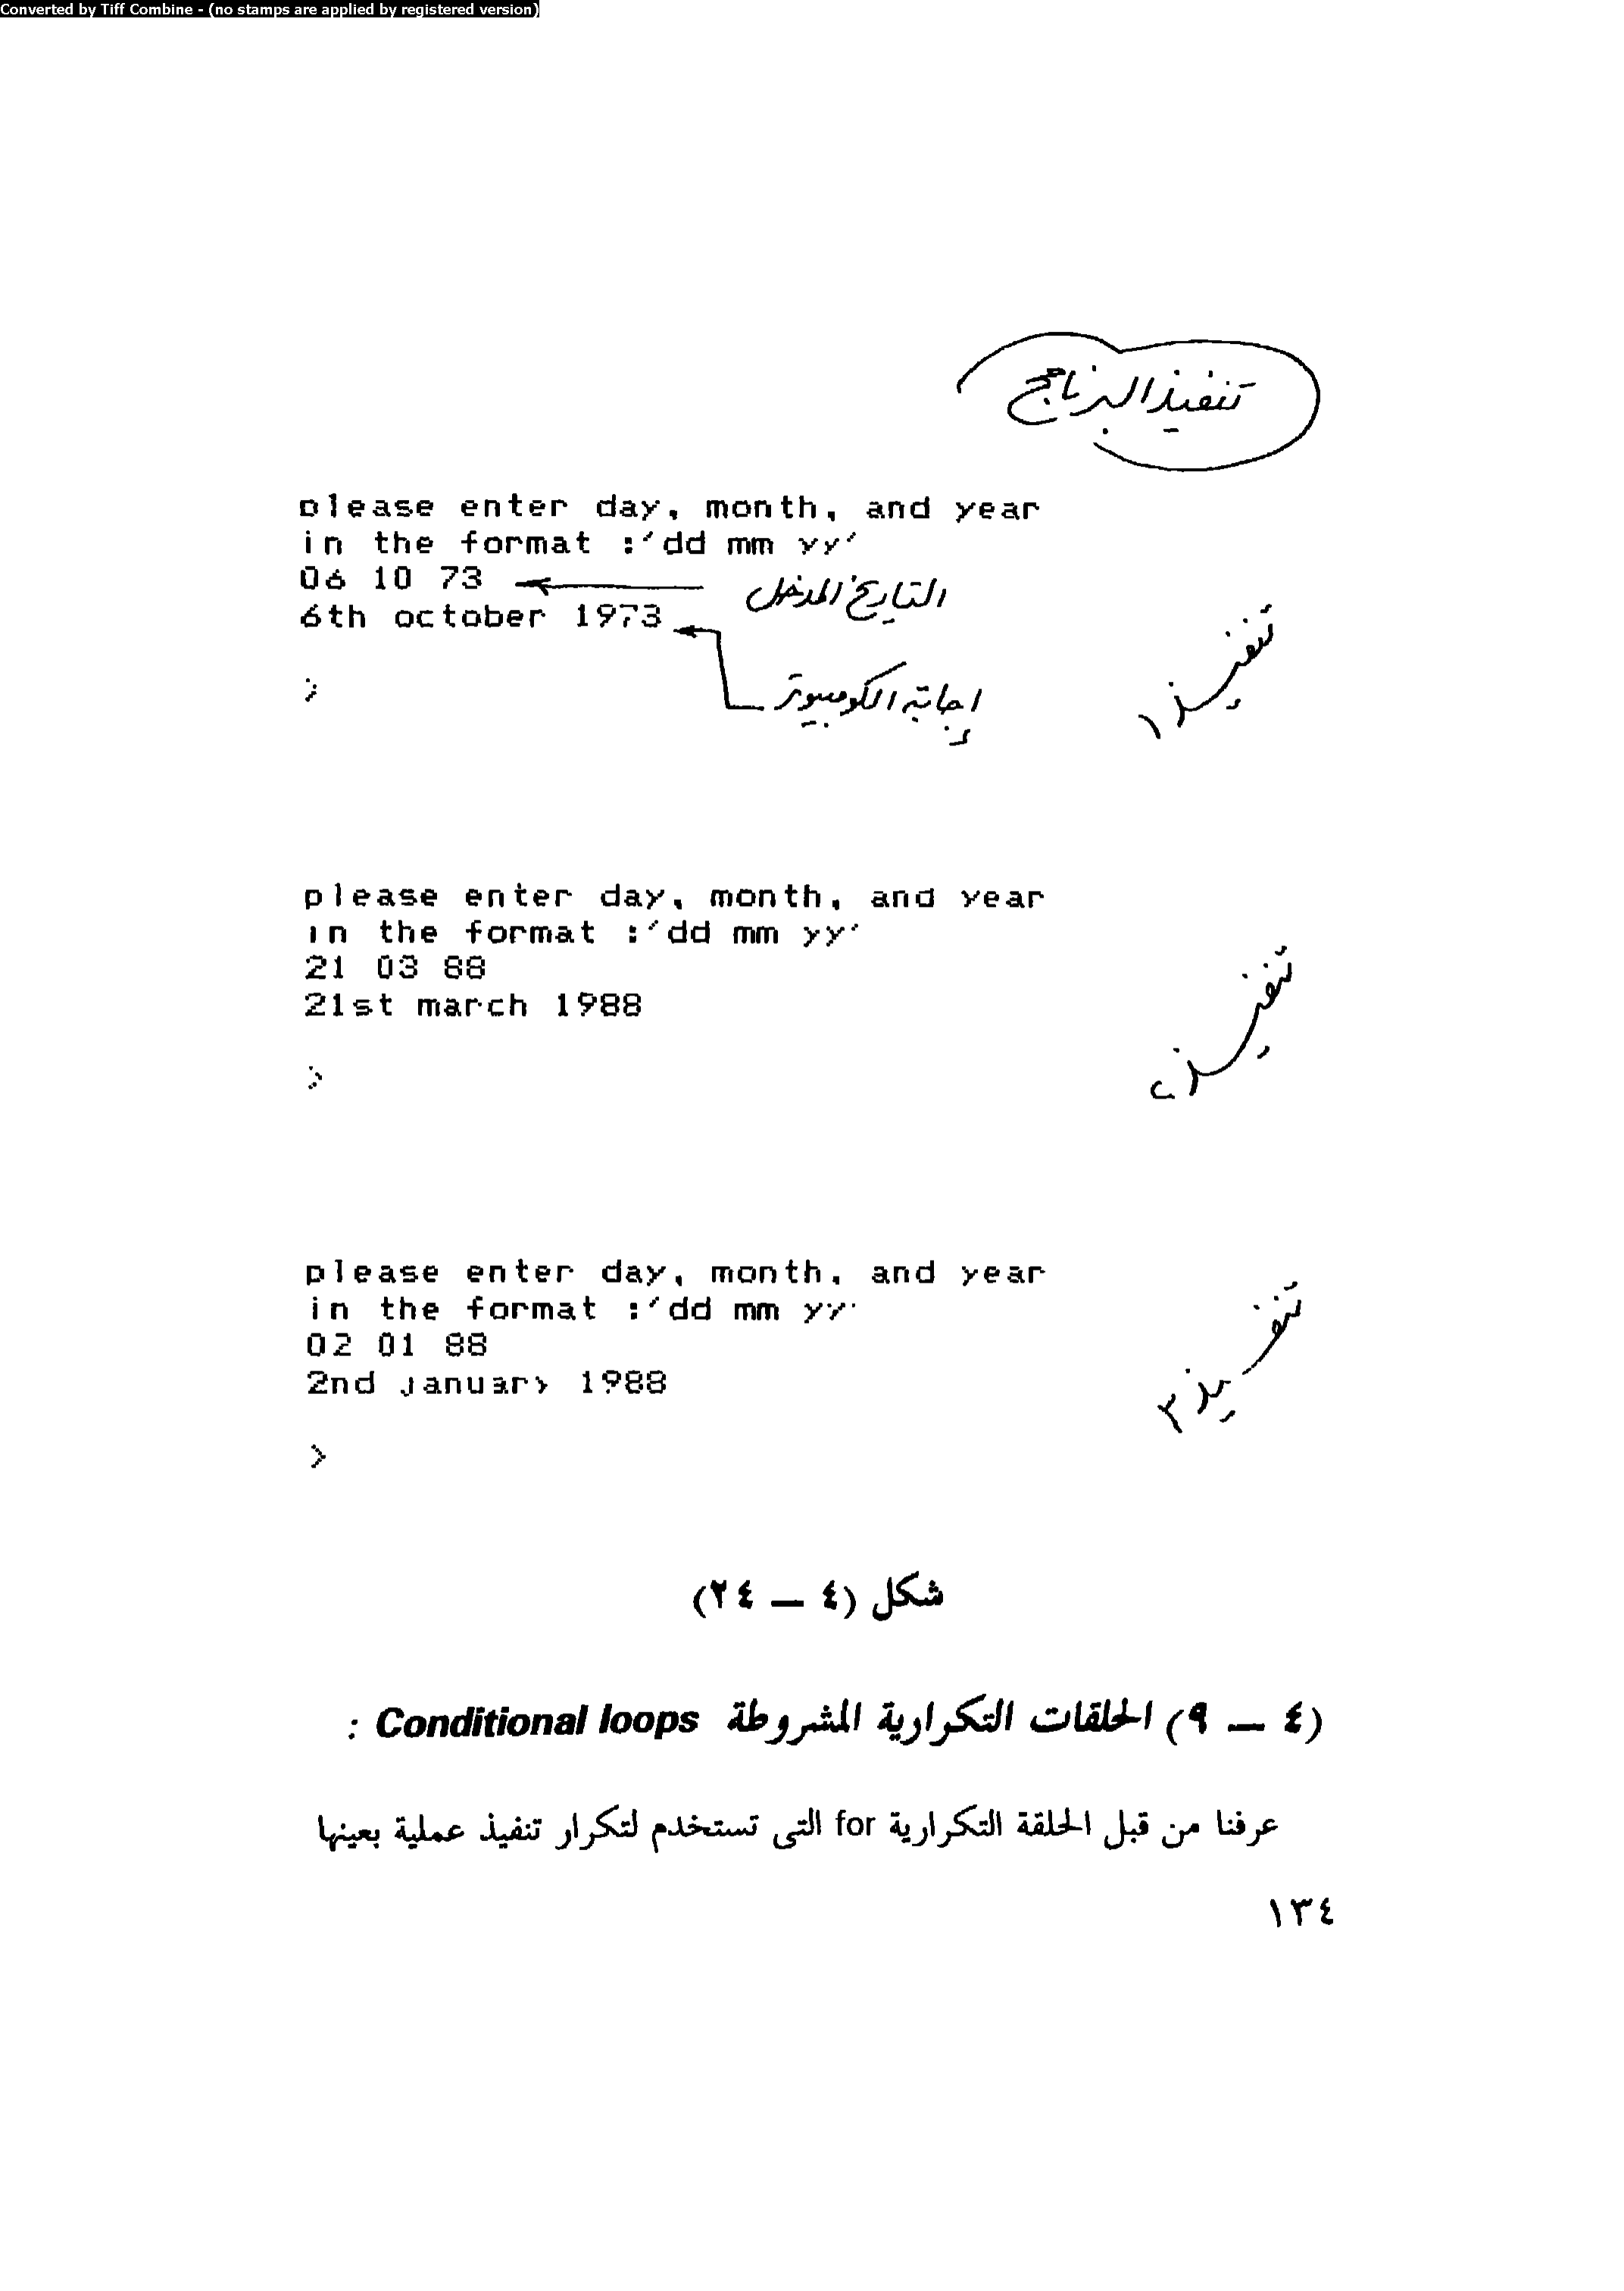 Converted by Tiff Combine - (no stamps are applied by registered version)
تنفيذ البرنامج
please enter day, month, and year
in the format :'dd mm yy'
06 10 73
التاريخ المدخل
6th october 1973
إجابة الكومبيوتر
تنفيذ ١
>
please enter day, month, and year
in the format :'dd mm yy'
21 03 88
21st march 1988
تنفيذ ٢
>
please enter day, month, and year
in the format :'dd mm yy'
02 01 88
2nd january 1988
تنفيذ ٣
>
شكل (٤ – ٢٤)
(٤ – ٩) الحلقات التكرارية المشروطة Conditional loops :
عرفنا من قبل الحلقة التكرارية for التى تستخدم لتكرار تنفيذ عملية بعينها
١٣٤